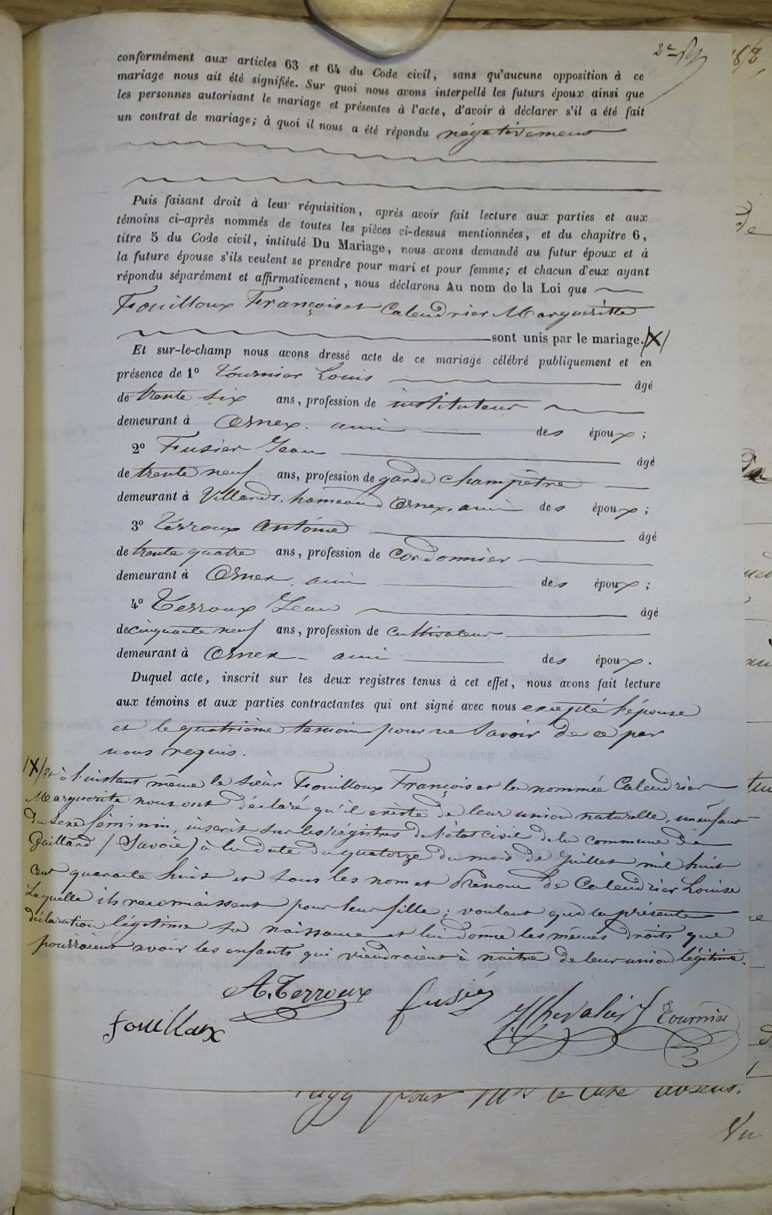 2e
conformément aux articles 63 et 64 du Code civil, sans qu'aucune opposition à ce
mariage nous ait été signifiée. Sur quoi nous avons interpellé les futurs époux ainsi que
les personnes autorisant le mariage et présentes à l'acte, d'avoir à déclarer s'il a été fait
un contrat de mariage; à quoi il nous a été répondu négativement
Puis faisant droit à leur réquisition, après avoir fait lecture aux parties et aux
témoins ci-après nommés de toutes les pièces ci-dessus mentionnées, et du chapitre 6,
titre 5 du Code civil, intitulé Du Mariage, nous avons demandé au futur époux et à
la future épouse s'ils veulent se prendre pour mari et pour femme; et chacun d'eux ayant
répondu séparément et affirmativement, nous déclarons Au nom de la Loi que
Fouilloux François et Calendrier Marguerite
sont unis par le mariage. /X/
Et sur-le-champ nous avons dressé acte de ce mariage célébré publiquement et en
présence de 1º Tournier Louis âgé
de trente six ans, profession de instituteur
demeurant à Ornex. ami des époux;
2º Fusier Jean âgé
de trente neuf ans, profession de garde champêtre
demeurant à Villards. hameau d'Ornex. ami des époux;
3º Terroux Antoine âgé
de trente quatre ans, profession de cordonnier
demeurant à Ornex. ami des époux;
4º Terroux Jean âgé
de cinquante neuf ans, profession de cultivateur
demeurant à Ornex - ami des époux.
Duquel acte, inscrit sur les deux registres tenus à cet effet, nous avons fait lecture
aux témoins et aux parties contractantes qui ont signé avec nous excepté l'épouse
et le quatrième temoin pour ne savoir de ce par
nous requis.
/X/ et à l'instant même le sieur Fouilloux François et la nommée Calendrier
Marguerite nous ont déclaré qu'il existe de leur union naturelle, un enfant
du sexe féminin, inscrit sur les régistres de l'état civil de la commune de
Gaillard /Savoie/ à la date du quatorze du mois de Juillet mil huit
cent quarante huit et sous les nom et prénom de Calendrier Louise
laquelle ils reconnaissent pour leur fille; voulant que la présente
déclaration légitime sa naissance et lui donne les mêmes droits que
pourraient avoir les enfants qui viendraient à naître de leur union légitime.
A. Terroux fusier Chevalier Tournier
fouilloux
pour Mr le Curé absent.
Vu